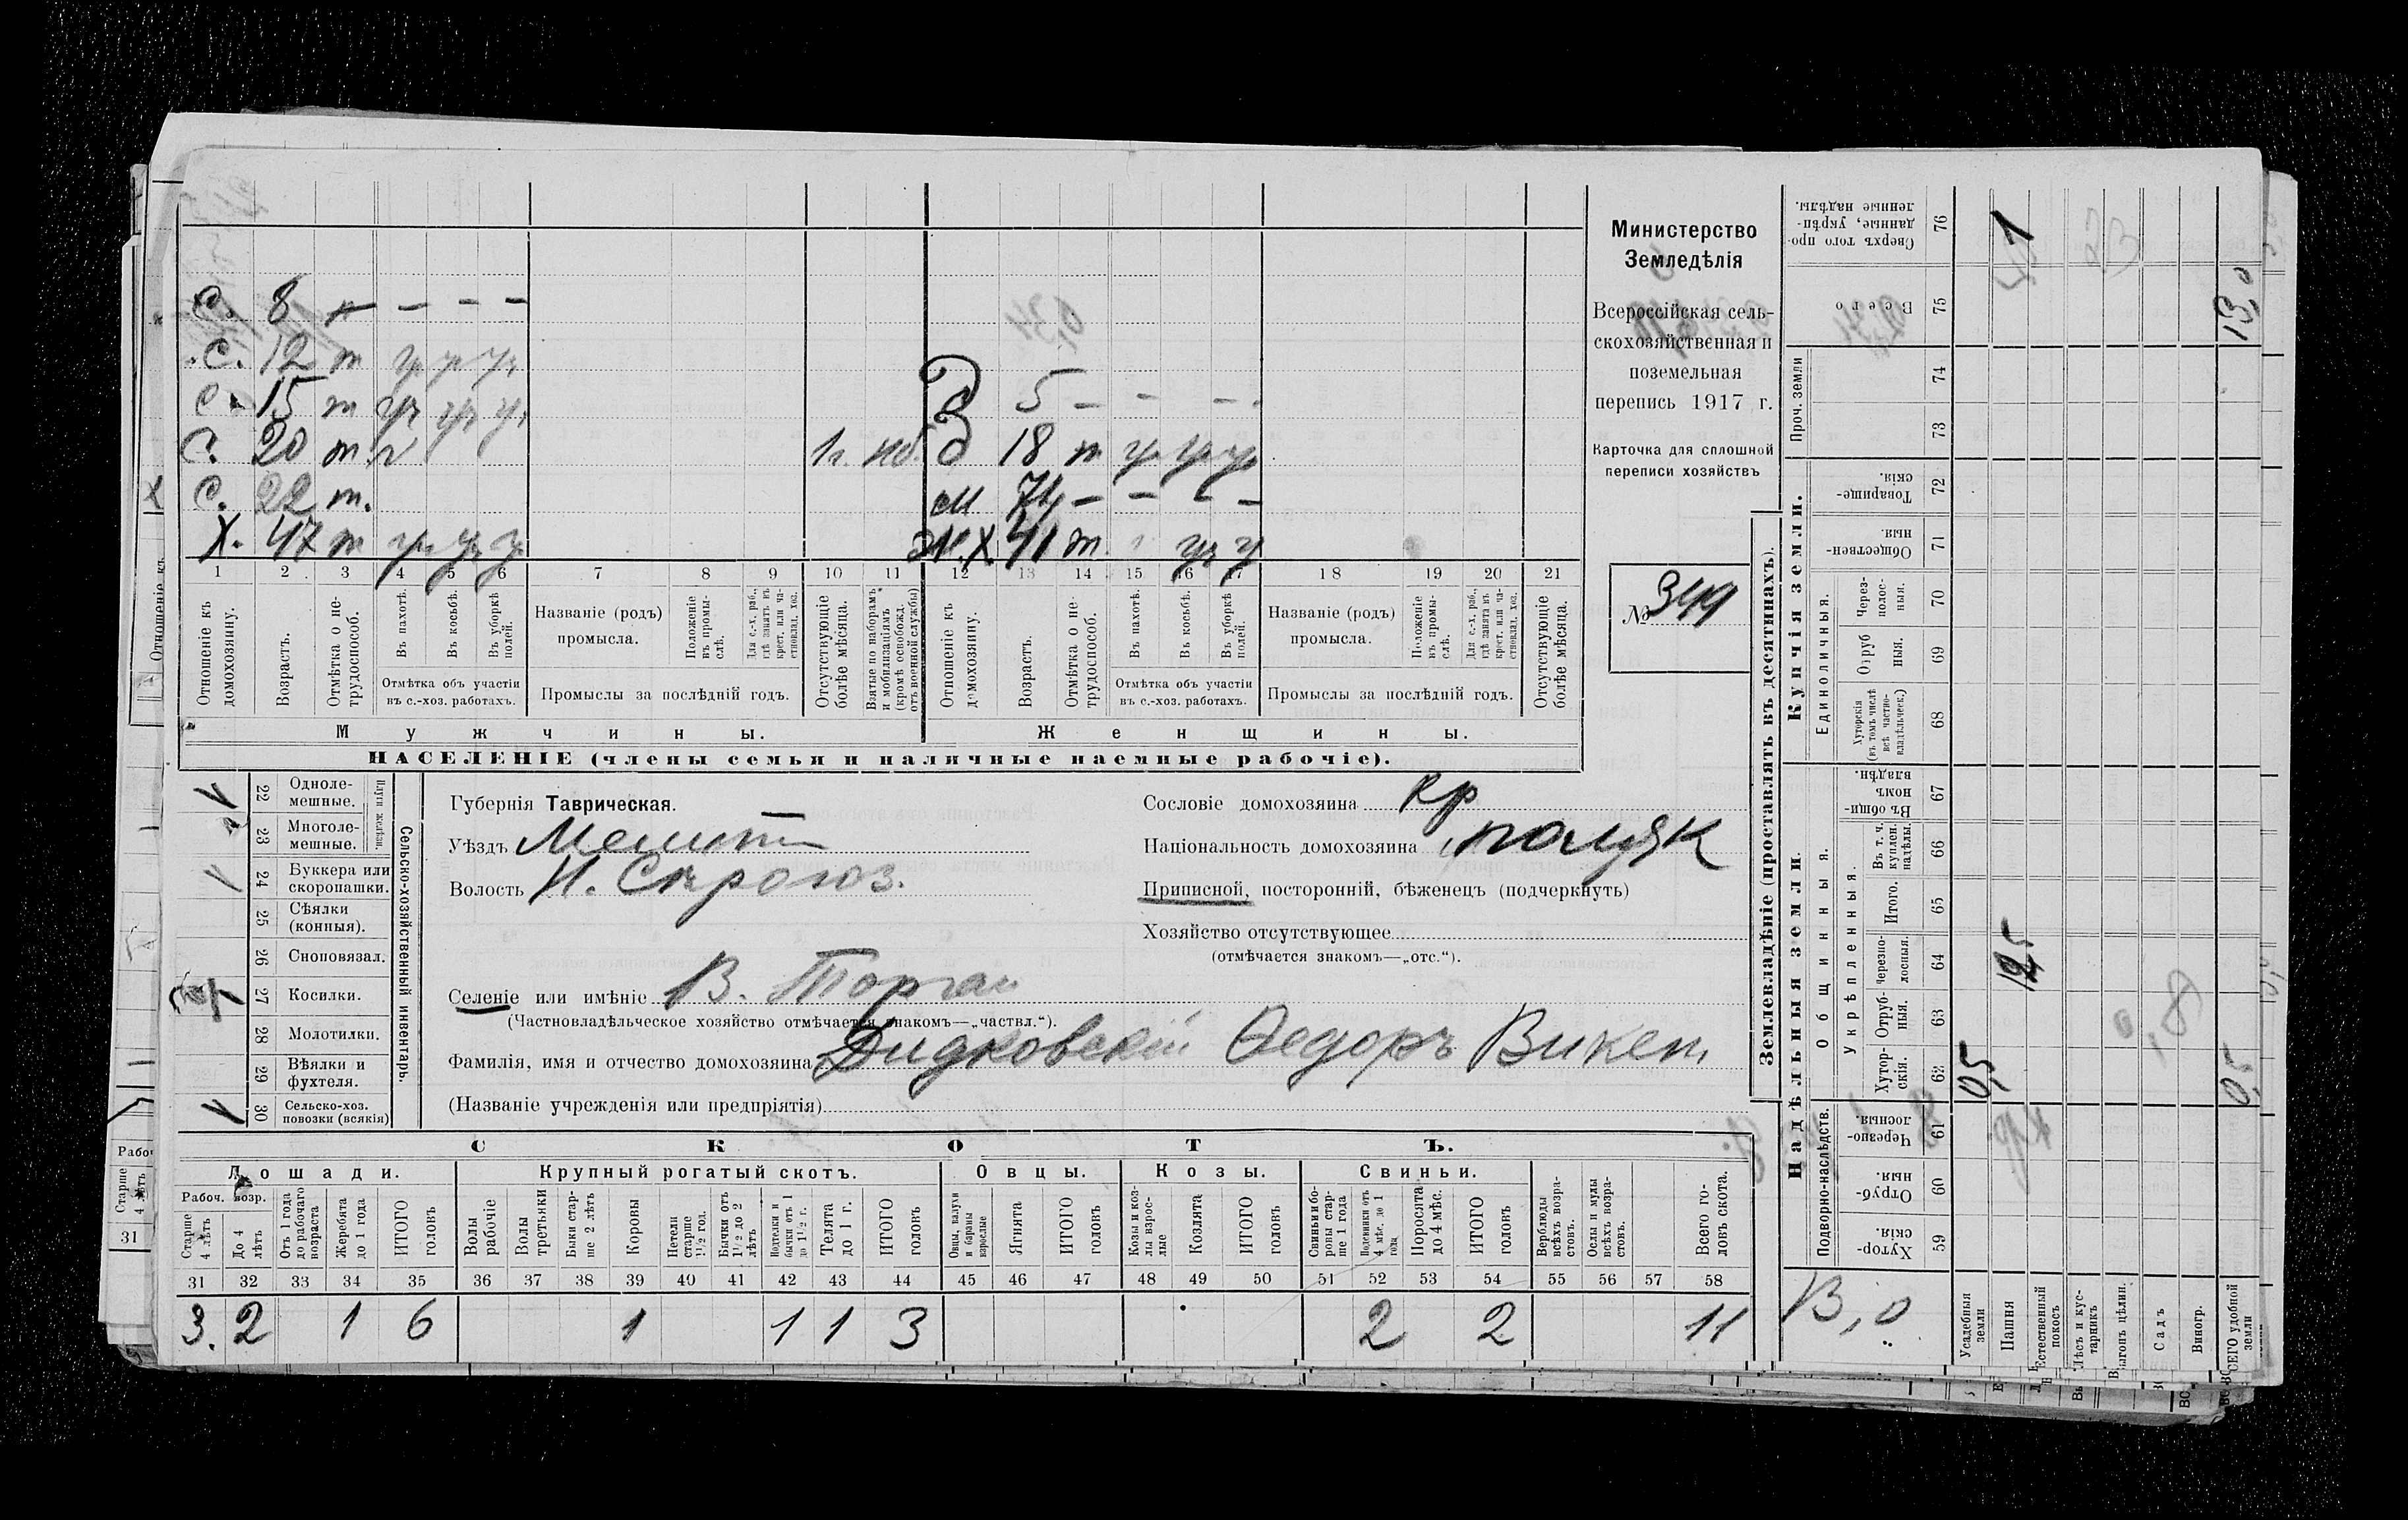 с. 8 н — — —
с. 12 т ур ур ур
с. 15 т ур ур ур
Д 5 — — —
с. 20 т 1 г. нб.
д 18 т ур ур ур
с. 22 т.
м 74 — — — —
Х. 47 т ур ур ур
ж.х 41 т ур ур
1 2 3 4 5 6 7 8 9 10 11 12 13 14 15 16 17 18 19 20 21
Отношеніе къ домохозяину.
Возрастъ.
Отмѣтка о нетрудоспособ.
Въ пахотѣ.
Въ косьбѣ.
Въ уборкѣ полей.
Отмѣтка объ участіи въ с.-хоз. работахъ.
Названіе (родъ) промысла.
Положеніе въ промыслѣ.
Для с.-х. раб., гдѣ занятъ въ крест. или частновлад. хоз.
Промыслы за послѣдній годъ.
Отсутствующіе болѣе мѣсяца.
Взятые по наборамъ и мобилизаціямъ (кромѣ освобожд. отъ военной службы)
Отношеніе къ домохозяину.
Возрастъ.
Отмѣтка о нетрудоспособ.
Въ пахотѣ.
Въ косьбѣ.
Въ уборкѣ полей.
Отмѣтка объ участіи въ с.-хоз. работахъ.
Названіе (родъ) промысла.
Положеніе въ промыслѣ.
Для с.-х. раб., гдѣ занята въ крест. или частновлад. хоз.
Промыслы за послѣдній годъ.
Отсутствующіе болѣе мѣсяца.
Мужчины.
Женщины.
НАСЕЛЕНІЕ (члены семьи и наличные наемные рабочіе).
Министерство
Земледѣлія
Всероссійская сель-
скохозяйственная и
поземельная
перепись 1917 г.
Карточка для сплошной
переписи хозяйствъ
№ 349
22 Одноле-мешные. 1
23 Многоле-мешные.
Плуги желѣзн.
24 Буккера или скоропашки. 1
25 Сѣялки (конныя).
26 Сноповязал.
27 Косилки.
28 Молотилки.
29 Вѣялки и фухтеля.
30 Сельско-хоз. повозки (всякія) 1
Сельско-хозяйственный инвентарь.
Губернія Таврическая.
Уѣздъ Мелит
Волость Н. Сѣрогоз.
Селеніе или имѣніе В. Торгаи
(Частновладѣльческое хозяйство отмѣчается знакомъ—„частвл.“).
Фамилія, имя и отчество домохозяина Дидковскій Ѳедоръ Викен,
(Названіе учрежденія или предпріятія)
Сословіе домохозяина кр
Національность домохозяина поляк
Приписной, посторонній, бѣженецъ (подчеркнуть)
Хозяйство отсутствующее
(отмѣчается знакомъ—„отс.“).
СКОТЪ.
Лошади. Крупный рогатый скотъ. Овцы. Козы. Свиньи.
Рабоч. возр.
Старше 4 лѣтъ
До 4 лѣтъ
Отъ 1 года до рабочаго возраста
Жеребята до 1 года
ИТОГО головъ
Волы рабочіе
Волы третьяки
Быки старше 2 лѣтъ
Коровы
Нетели старше 1½ год.
Бычки отъ 1½ до 2 лѣтъ
Подтелки и бычки отъ 1 до 1½ г.
Телята до 1 г.
ИТОГО головъ
Овцы, валухи и бараны взрослые
Ягнята
ИТОГО головъ
Козы и козлы взрослые
Козлята
ИТОГО головъ
Свиньи и боровы старше 1 года
Подсвинки отъ 4 мѣс. до 1 года
Поросята до 4 мѣс.
ИТОГО головъ
Верблюды всѣхъ возрастовъ.
Ослы и мулы всѣхъ возрастовъ.
Всего головъ скота.
31 32 33 34 35 36 37 38 39 40 41 42 43 44 45 46 47 48 49 50 51 52 53 54 55 56 57 58
3. 2 1 6 1 1 1 3 2 2 11
Землевладѣніе (проставлять въ десятинахъ).
Надѣльныя земли.
Купчія земли.
Проч. земли
Подворно-наслѣдств.
Общинныя.
Укрѣпленныя.
Единоличныя.
Хуторскія 59
Отрубныя 60
Черезполосныя 61
Хуторскія. 62
Отрубныя. 63
Черезполосныя. 64
Итого. 65
Въ т. ч. куплен. надѣлы. 66
Въ общинномъ владѣн. 67
Хуторскія (въ томъ числѣ всѣ частновладѣльческ.) 68
Отрубныя. 69
Черезполосныя. 70
Общественныя. 71
Товарищескія. 72
73
74
Всего 75
Сверхъ того проданные, укрѣпленные надѣлы. 76
Усадебныя земли 0,5
Пашня 12,5
Естественный покосъ
Лѣсъ и кустарникъ
Выгонъ цѣлин.
Садъ
Виногр.
ВСЕГО удобной земли 0,5 13,0